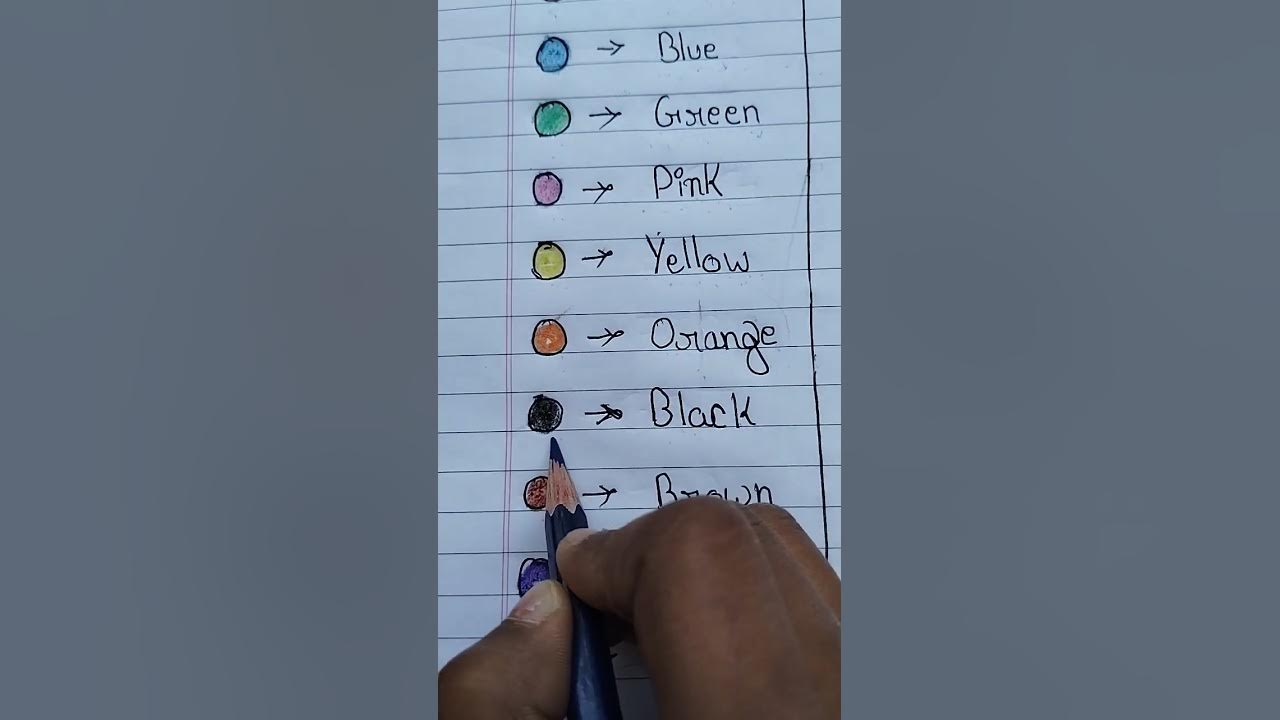 → Blue
→ Green
→ Pink
→ Yellow
→ Orange
→ Black
→ Brown